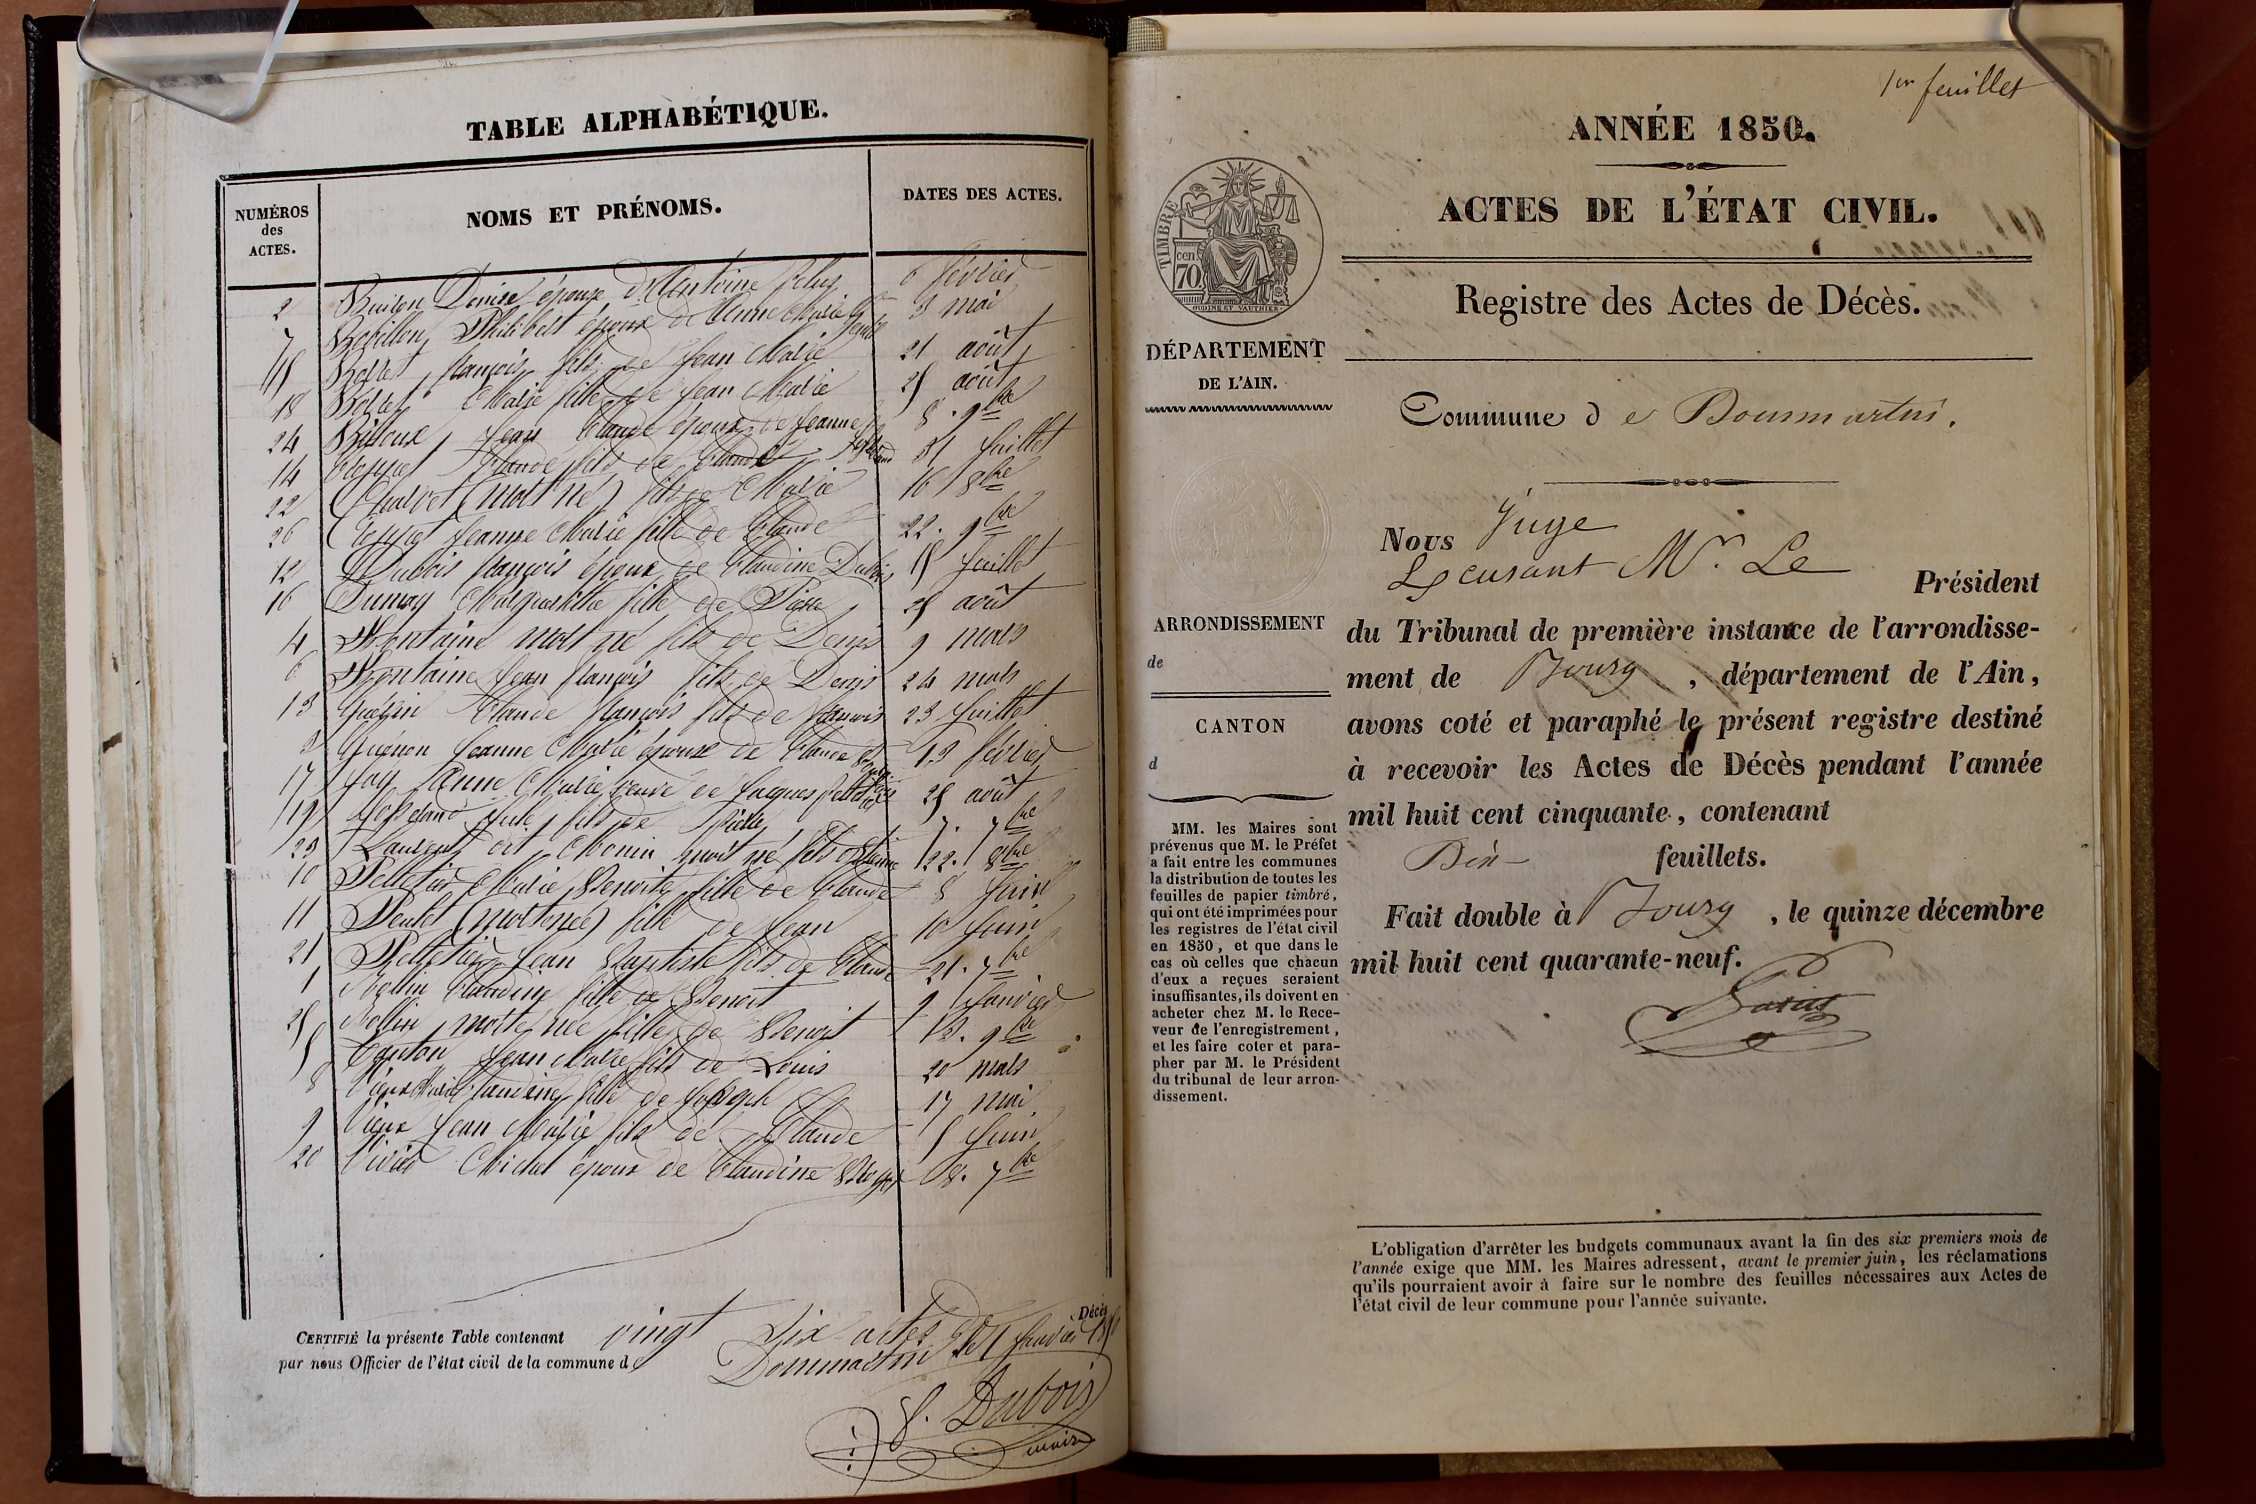 TABLE ALPHABÉTIQUE.
NUMÉROS
des
ACTES.
NOMS ET PRÉNOMS.
DATES DES ACTES.
2 Denise épouse d'Antoine 6 février
7 Robillon Philibert époux de Anne Marie 3 mai
15 François fils de Jean Marie 21 août
18 Marie fille de Jean Marie 25 août
24 Jean Claude époux de Jeanne 8. 9bre
14 Claude fils de Claude 31 juillet
22 (mort né) fils de Marie 16 8bre
26 Jeanne Marie fille de Claude 22. 9bre
12 Dubois françois époux de Claudine Dubois 15 juillet
16 Dumay Marguerithe fille de 25 août
4 Fontaine mort né fils de Denis 9 mars
6 Fontaine Jean françois fils de Denis 24 mars
13 Claude françois fils de françois 23 juillet
3 Guénon Jeanne Marie épouse de Claude 13 février
17 Jay Anne Marie veuve de Jacques 25 août
19 fils de 7. 7bre
23 dit Monin mort né fils d'Etienne 22. 8bre
10 Pelletier Marie Benoite fille de Claude 8 juin
11 (mort née) fille de Jean 10 juin
21 Pelletier Jean Baptiste fils de Claude 21. 7bre
1 Claudine fille de Benoit 9 Janvier
25 mort née fille de Benoit 9bre
5 Jean Marie fils de Louis 20 mars
8 Claudine fille de Joseph 17 mai
9 Jean Marie fils de Claude 5 juin
20 Michel époux de Claudine 8. 7bre
CERTIFIÉ la présente Table contenant vingt Six actes de Décès
par nous Officier de l'état civil de la commune de Dommartin le 1 Janvier
J. Dubois
maire
1er feuillet
ANNÉE 1850.
ACTES DE L'ÉTAT CIVIL.
Registre des Actes de Décès.
TIMBRE
70 cen
OUDINÉ ET VAUTHIER
DÉPARTEMENT
DE L'AIN.
Commune de Dommartin.
Nous Juge
Mr. Le Président
du Tribunal de première instance de l'arrondisse-
ment de Bourg, département de l'Ain,
avons coté et paraphé le présent registre destiné
à recevoir les Actes de Décès pendant l'année
mil huit cent cinquante, contenant
feuillets.
Fait double à Bourg, le quinze décembre
mil huit cent quarante-neuf.
ARRONDISSEMENT
de
CANTON
d
MM. les Maires sont
prévenus que M. le Préfet
a fait entre les communes
la distribution de toutes les
feuilles de papier timbré,
qui ont été imprimées pour
les registres de l'état civil
en 1850, et que dans le
cas où celles que chacun
d'eux a reçues seraient
insuffisantes, ils doivent en
acheter chez M. le Rece-
veur de l'enregistrement,
et les faire coter et para-
pher par M. le Président
du tribunal de leur arron-
dissement.
L'obligation d'arrêter les budgets communaux avant la fin des six premiers mois de
l'année exige que MM. les Maires adressent, avant le premier juin, les réclamations
qu'ils pourraient avoir à faire sur le nombre des feuilles nécessaires aux Actes de
l'état civil de leur commune pour l'année suivante.